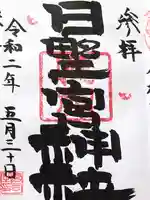 參拝
日野宮神社
令和二年 五月三十日